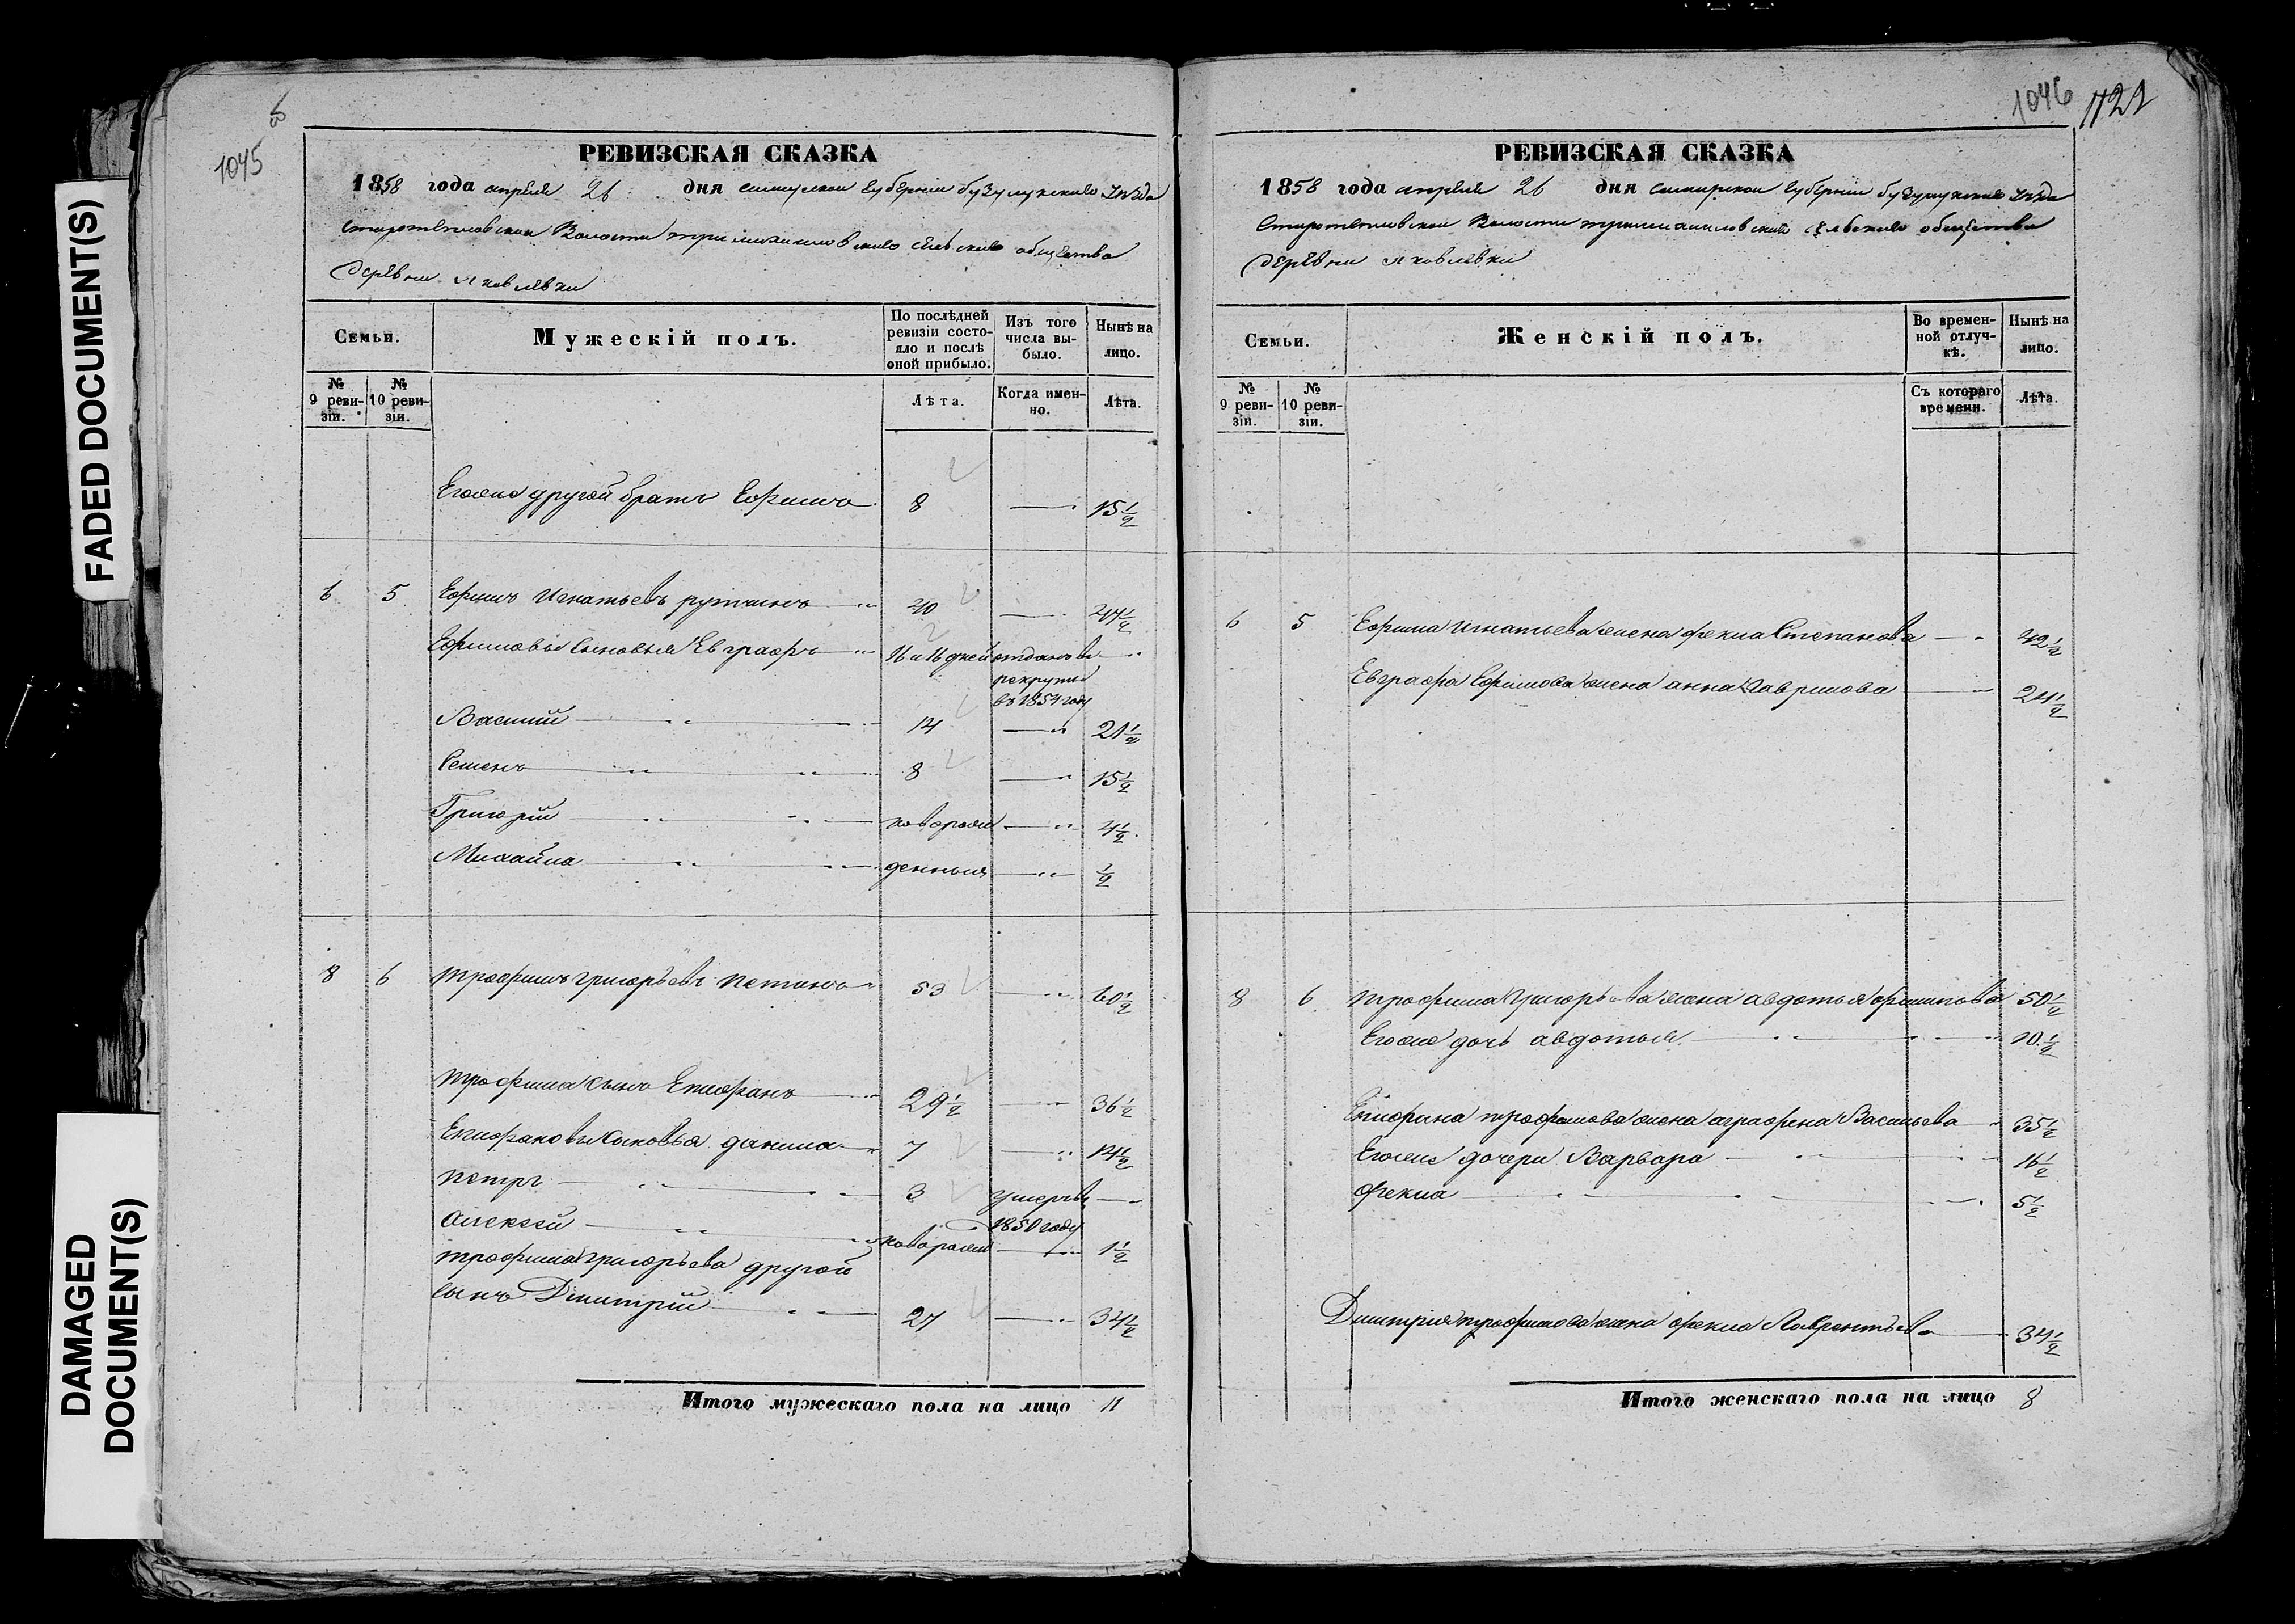 FADED DOCUMENT(S)
DAMAGED
DOCUMENT(S)
1045
РЕВИЗСКАЯ СКАЗКА
1858 года апреля 26 дня губернии бузулукского
Волости сельского общества
деревни яковлевки
Семьи.
Мужескій полъ.
По послѣдней
ревизіи состо-
яло и послѣ
оной прибыло.
Изъ того
числа вы-
было.
Нынѣ на
лицо.
№
9 реви-
зіи.
№
10 реви-
зіи.
Лѣта.
Когда имен-
но.
Лѣта.
Егоже другой братъ Ефимъ 8 15½
6 5 Ефимъ Игнатьевъ 40 47½
Ефимовы сыновья Евграфъ 16 и 16 дней отданъ въ
рекруты
въ 1854 году
Василий 14 21½
Семенъ 8 15½
Григорій новорож 4½
Михайла денныя ½
8 6 трофимъ григорьевъ 53 60½
трофима сынъ Епифанъ 29½ 36½
Епифановы сыновья данила 7 14½
петръ 3 умеръ въ
1850 году
алексей новорожд 1½
трофима григорьева другой
сынъ Дмитрій 27 34½
Итого мужескаго пола на лицо 11
1046 1121
РЕВИЗСКАЯ СКАЗКА
1858 года апреля 26 дня губернии бузулукского
Волости сельского общества
деревни яковлевки
Семьи.
Женскій полъ.
Во времен-
ной отлуч-
кѣ.
Нынѣ на
лицо.
№
9 реви-
зіи.
№
10 реви-
зіи.
Съ котораго
времени.
Лѣта.
6 5 Ефима игнатьева жена фекла Степанова 42½
Евграфа Ефимова жена анна 24½
8 6 трофима Григорьева жена авдотья 50½
Егоже дочь авдотья 10½
Епифана трофимова жена аграфена Васильева 35½
Егоже дочери Варвара 16½
фекла 5½
Дмитрия трофимова жена фекла Лаврентьева 34½
Итого женскаго пола на лицо 8